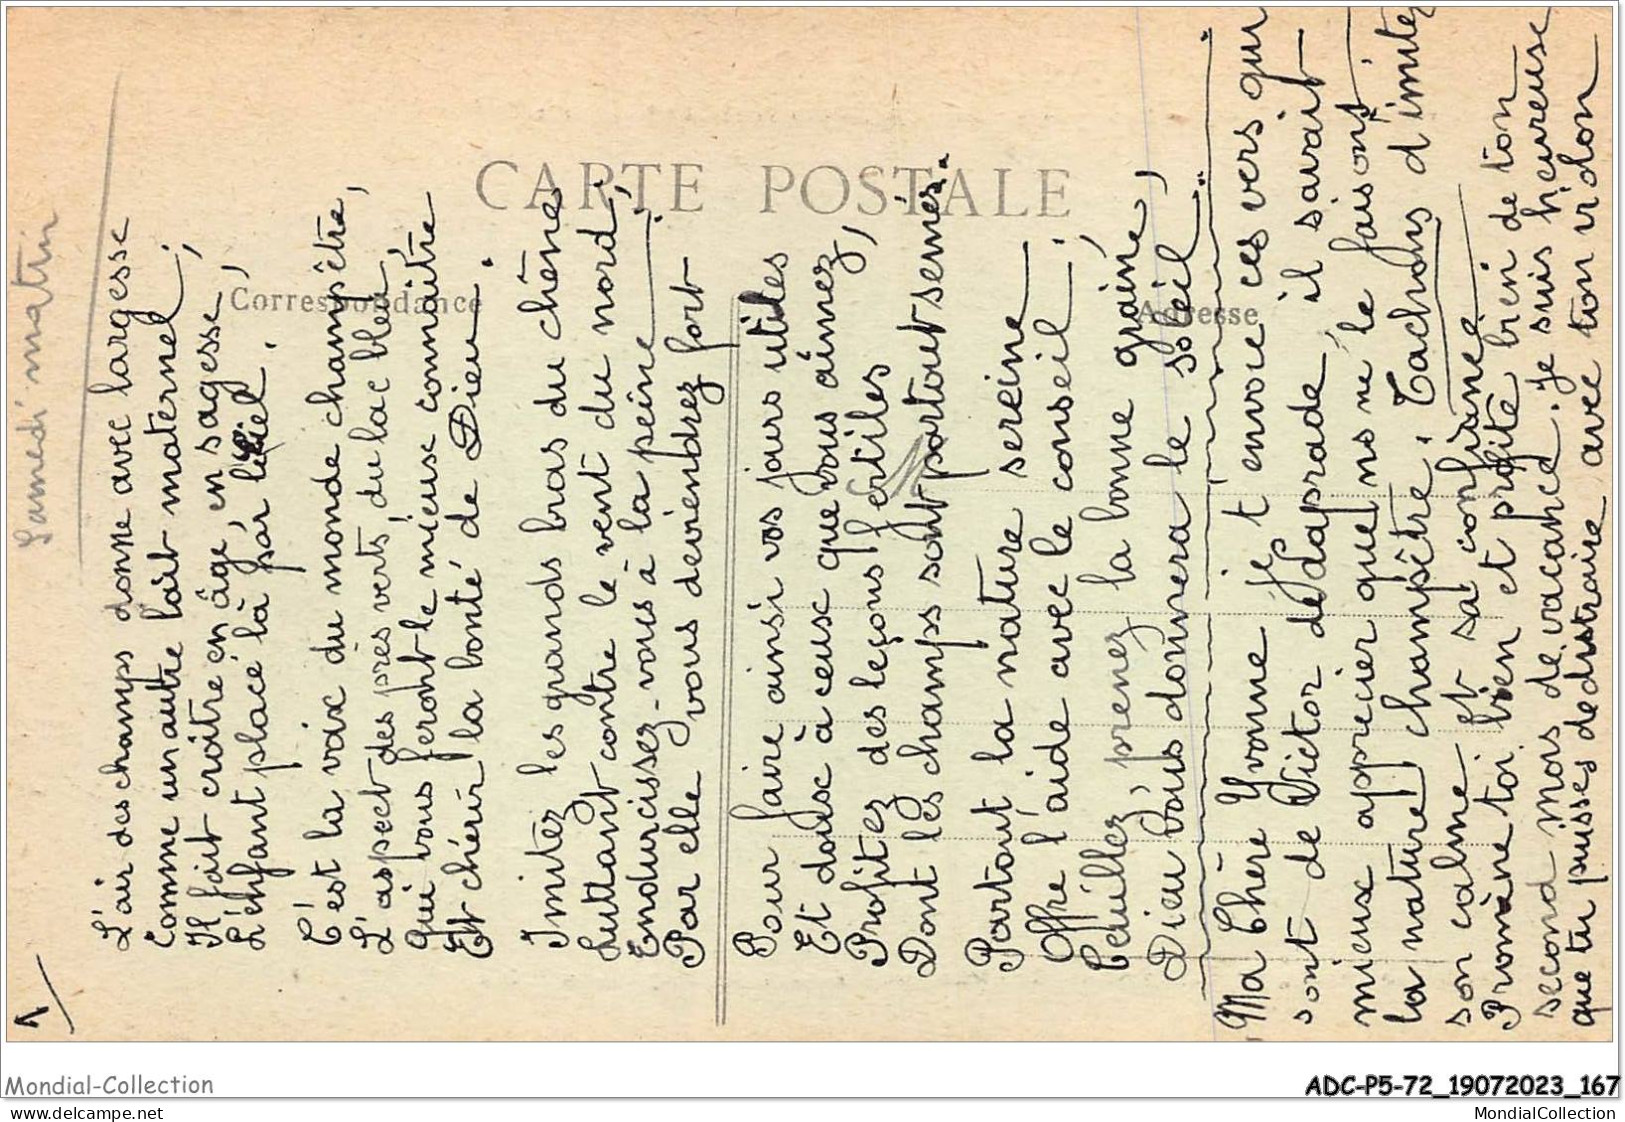 Samedi matin
1
L'air des champs donne avec largesse
Comme un autre lait maternel ;
Il fait croître en âge, en sagesse,
L'enfant placé là par le ciel.
C'est la voix du monde champêtre,
L'aspect des près verts, du lac bleu,
Qui vous feront le mieux connaître
Et chérir la bonté de Dieu.
Imitez les grands bras du chêne
Luttant contre le vent du nord ;
Endurcissez-vous à la peine :
Par elle vous deviendrez fort
Pour faire ainsi vos jours utiles
Et doux à ceux que vous aimez,
Profitez des leçons fertiles
Dont les champs sont partout semés.
Partout la nature sereine
Offre l'aide avec le conseil ;
Cueillez, prenez la bonne graine,
Dieu vous donnera le soleil
Ma Chère Yvonne je t'envoie ces vers qui
sont de Victor de Laprade, il savait
mieux apprecier que ns ne le faisons,
la nature champêtre. Tachons d'imiter
son calme et sa confiance
Promène toi bien et profite bien de ton
second mois de vacance. je suis heureuse
que tu puisses de distraire avec ton vidon
CARTE POSTALE
Correspondance
Adresse
Mondial-Collection
ADC-P5-72_19072023_167
delcampe.net
MondialCollection